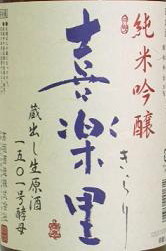 純米吟醸
喜楽里
きらり
蔵出し生原酒
一五〇一号酵母